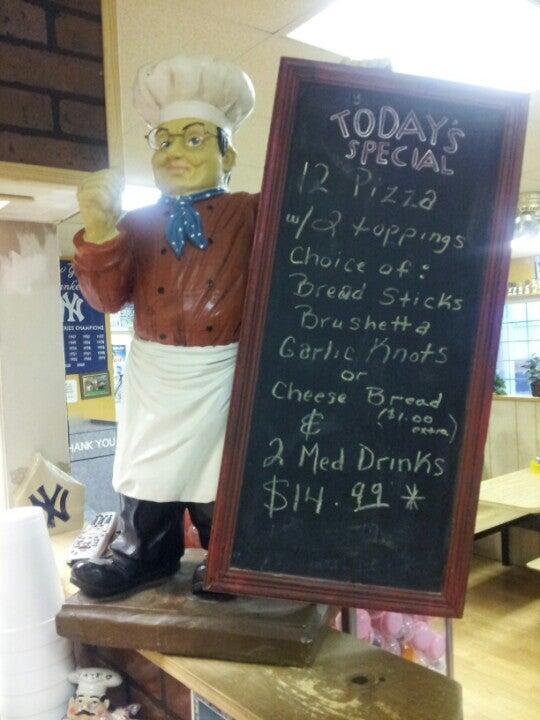 TODAY'S
SPECIAL
12 Pizza
w/ 2 toppings
Choice of:
Bread Sticks
Brushetta
Garlic Knots
or
Cheese Bread
& ($1.00 extra)
2 Med Drinks
$14.99 *
NY
SERIES CHAMPIONS
HANK YOU
NY